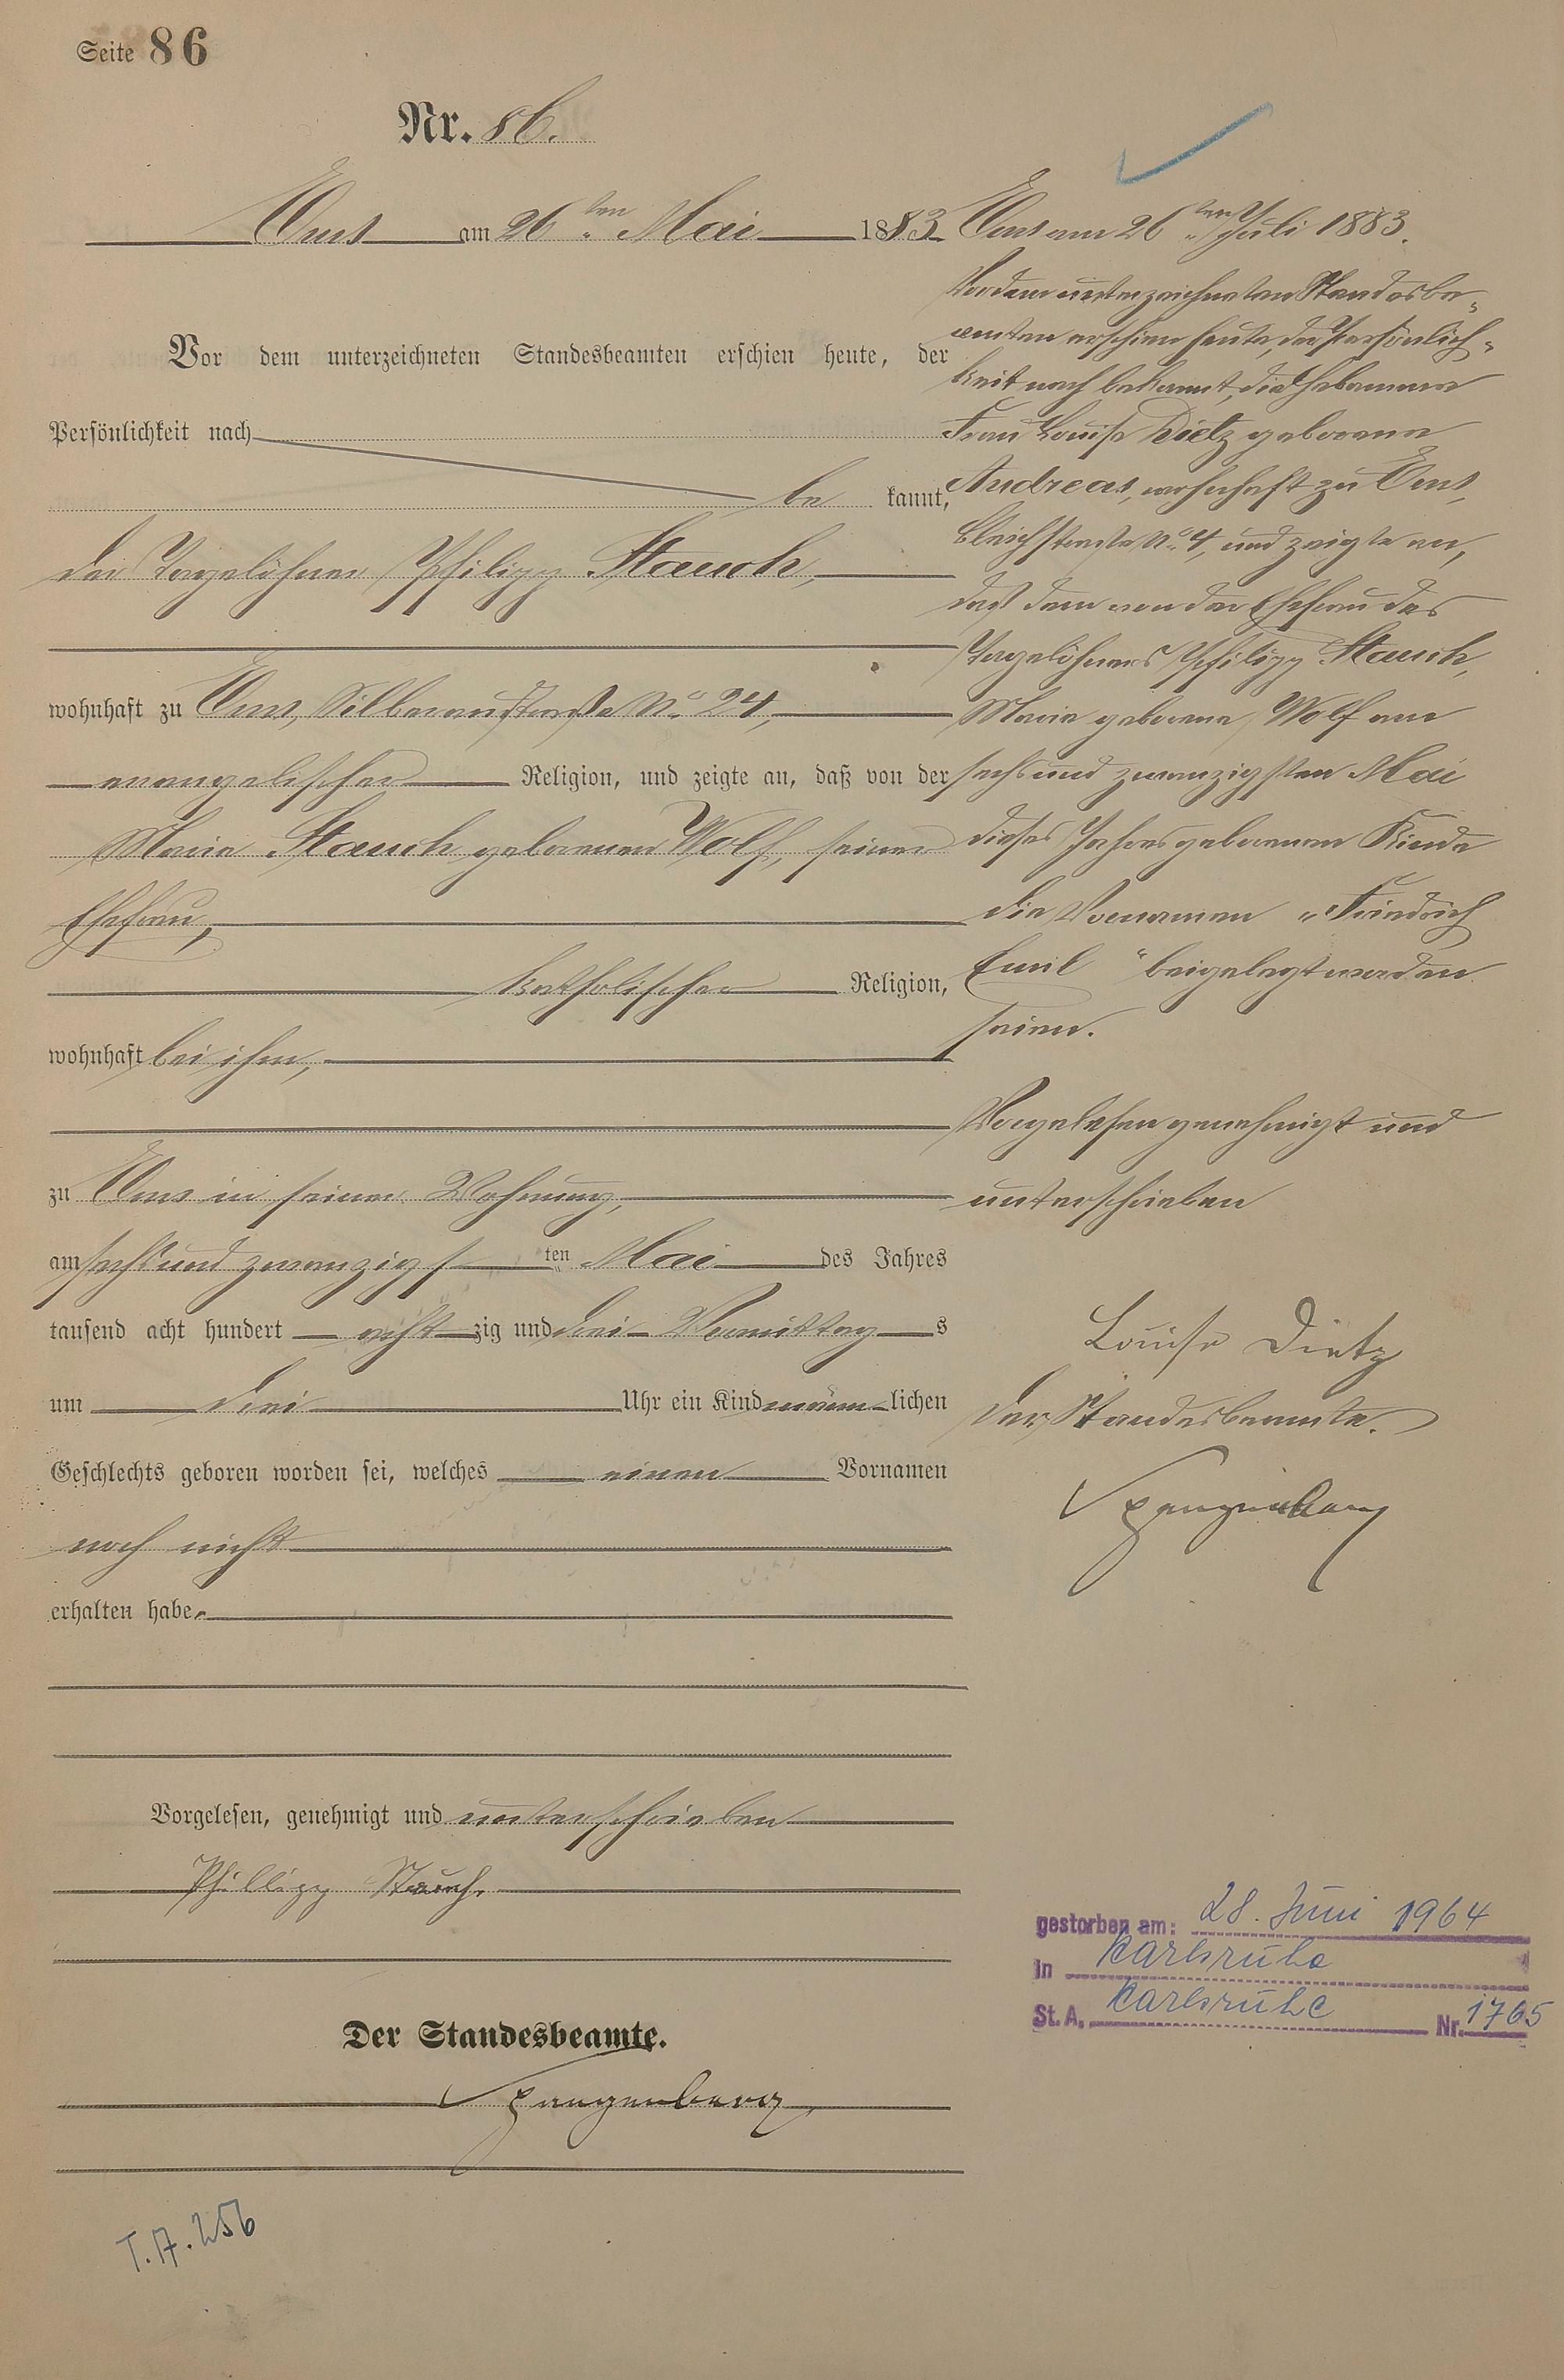 Seite 86
Nr. 86.
Ems am 26ten Mai 1883.
Vor dem unterzeichneten Standesbeamten erschien heute, der
Persönlichkeit nach
be kannt,
der Tagelöhner Philipp Stauch,
wohnhaft zu Ems, Silberaustraße No 24,
evangelischer Religion, und zeigte an, daß von der
Marie Stauch geborenen Wolf, seiner
Ehefrau,
katholischer Religion,
wohnhaft bei ihm,
zu Ems in seiner Wohnung,
am sechs und zwanzigsten Mai des Jahres
tausend acht hundert achtzig und drei Vormittags
um drei Uhr ein Kind männlichen
Geschlechts geboren worden sei, welches einen Vornamen
noch nicht
erhalten habe.
Vorgelesen, genehmigt und unterschrieben
Phillipp Stauch.
Der Standesbeamte.
Spangenberg
T. A. 256
Ems am 26ten Juli 1883.
Vor dem unterzeichneten Standesbe-
amten erschien heute, der Persönlich-
keit nach bekannt, die Hebamme
Frau Louise Dietz geborene
Andreas, wohnhaft zu Ems,
Bleichstraße No 4, und zeigte an,
daß dem von der Ehefrau des
Tagelöhners Philipp Stauch,
Marie geborene Wolf am
sechs und zwanzigsten Mai
dieses Jahres geborenen Kinde
die Vornamen „Friedrich
Emil“ beigelegt worden
seien.
Vorgelesen genehmigt und
unterschrieben
Louise Dietz
Der Standesbeamte.
Spangenberg
gestorben am: 28. Juni 1964
in Karlsruhe
St. A. Karlsruhe Nr. 1765